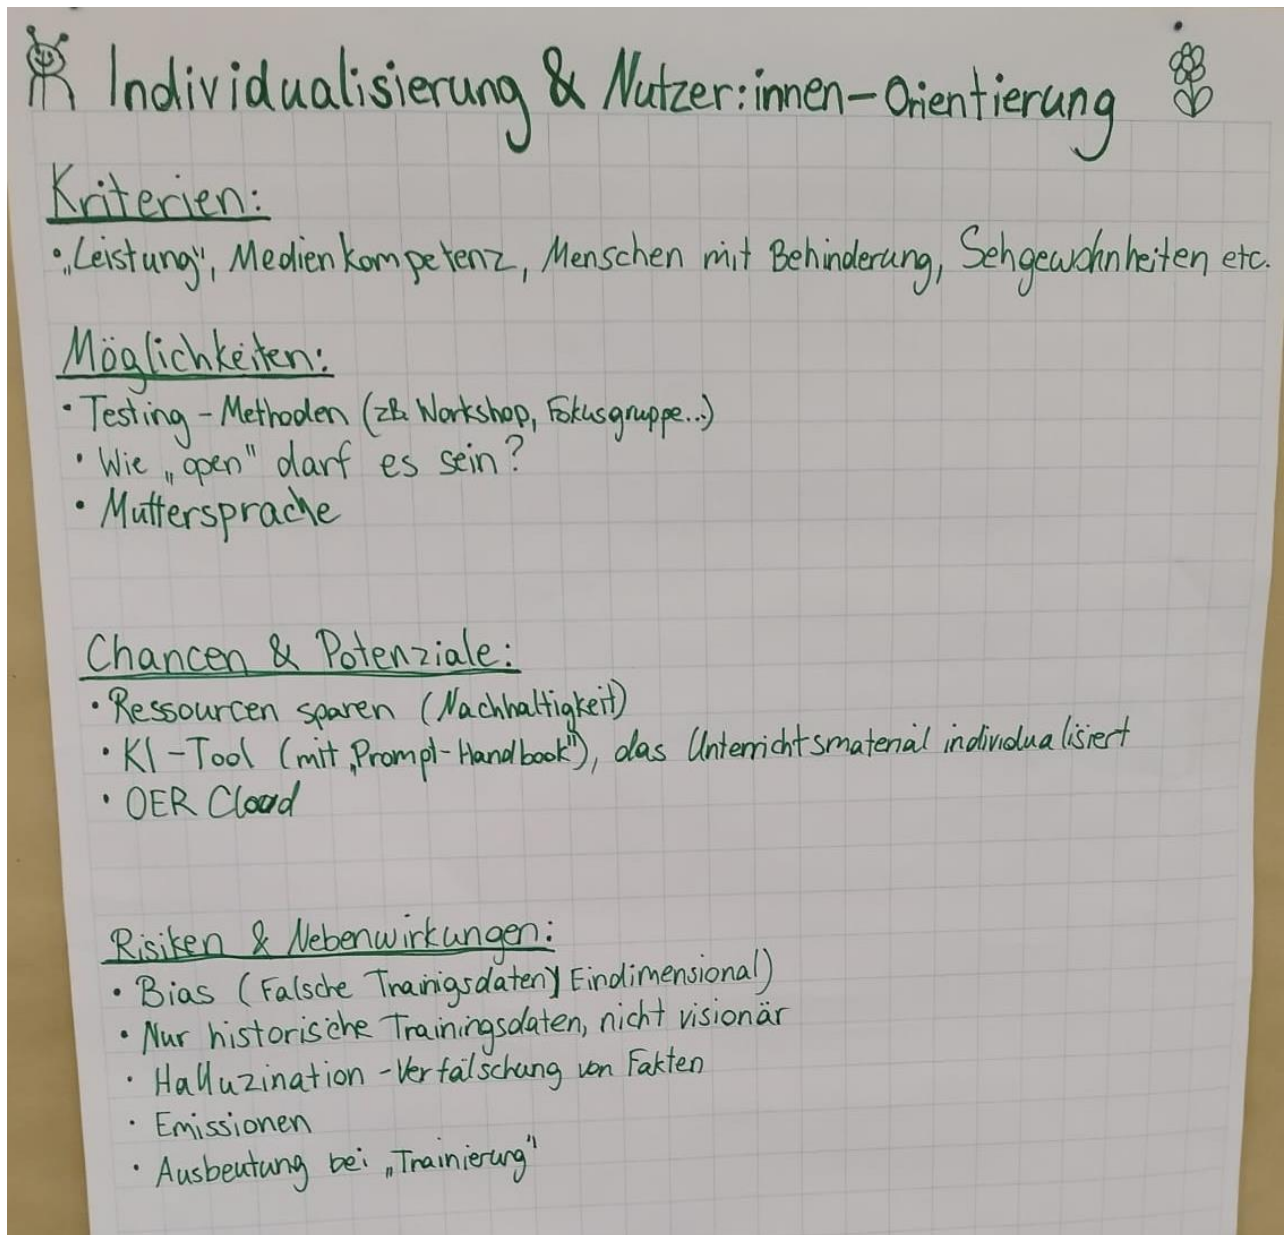 Individualisierung & Nutzer:innen-Orientierung
Kriterien:
• „Leistung", Medienkompetenz, Menschen mit Behinderung, Sehgewohnheiten etc.
Möglichkeiten:
• Testing - Methoden (zB Workshop, Fokusgruppe...)
• Wie „open" darf es sein?
• Muttersprache
Chancen & Potenziale:
• Ressourcen sparen (Nachhaltigkeit)
• KI-Tool (mit „Prompt-Handbook"), das Unterrichtsmaterial individualisiert
• OER Cloud
Risiken & Nebenwirkungen:
• Bias (Falsche Trainigsdaten) Eindimensional)
• Nur historische Trainingsdaten, nicht visionär
• Halluzination - Verfälschung von Fakten
• Emissionen
• Ausbeutung bei „Trainierung"